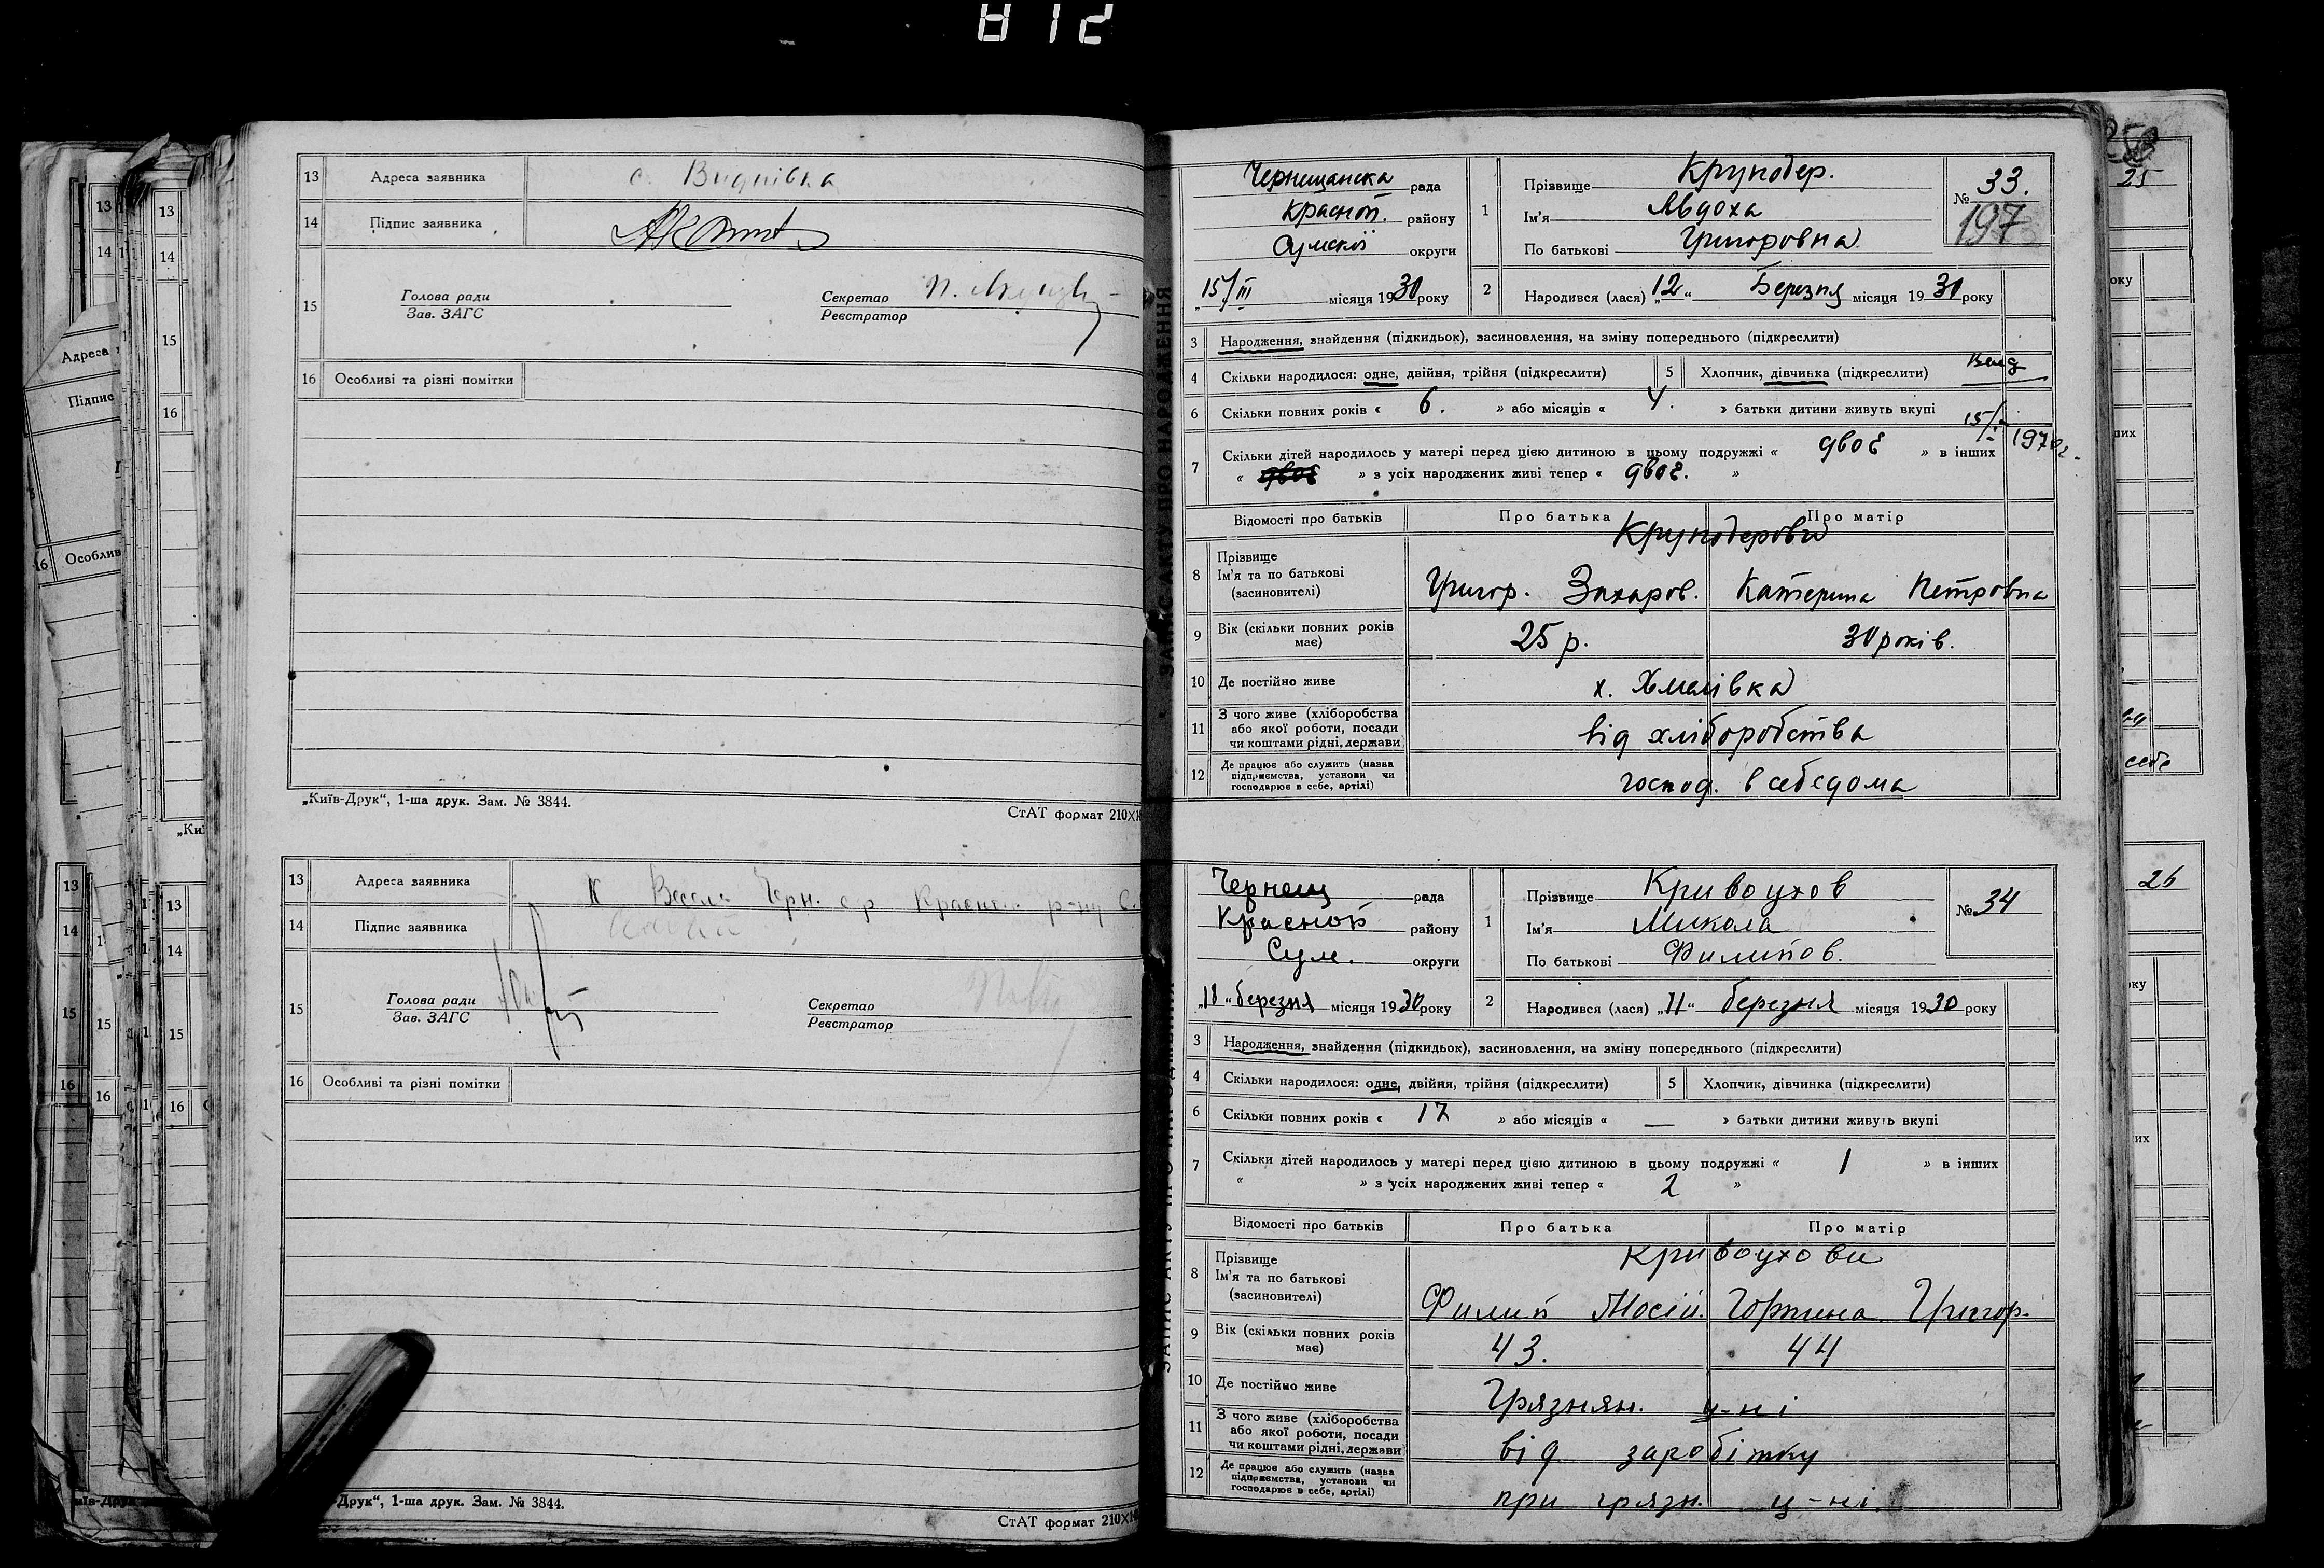 812
13 Адреса заявника с. Видпівка
14 Підпис заявника
15 Голова ради
Зав. ЗАГС
Секретар
Реєстратор
16 Особливі та різні помітки
„Київ-Друк“, 1-ша друк. Зам. № 3844.
СтАТ формат 210×1
13 Адреса заявника Черн. с/р р-ну
14 Підпис заявника
15 Голова ради
Зав. ЗАГС
Секретар
Реєстратор
16 Особливі та різні помітки
-Друк“, 1-ша друк. Зам. № 3844.
СтАТ формат 210×1
ЗАПИС АКТУ ПРО НАРОДЖЕННЯ
Чернещанска рада
Красноп. району
Сумскої округи
15/III місяця 1930 року
1 Прізвище Круподер.
Ім'я Явдоха
По батькові Григоровна
№ 33.
197
2 Народився (лася) „12“ Березня місяця 1930 року
3 Народження, знайдення (підкидьок), засиновлення, на зміну попереднього (підкреслити)
4 Скільки народилося: одне, двійня, трійня (підкреслити) 5 Хлопчик, дівчинка (підкреслити)
6 Скільки повних років « 6. » або місяців « 4. » батьки дитини живуть вкупі
1970г.
7 Скільки дітей народилось у матері перед цією дитиною в цьому подружжі « двоє » в інших
« двоє » з усіх народжених живі тепер « двоє. »
Відомості про батьків Про батька Про матір
Круподерови
8 Прізвище
Ім'я та по батькові
(засиновителі)
Григор. Захаров. Катерина Петровна
9 Вік (скільки повних років має) 25 р. 30 років.
10 Де постійно живе х. Хмелівка
11 З чого живе (хліборобства
або якої роботи, посади
чи коштами рідні, держави
від хліборобства
12 Де працює або служить (назва
підприємства, установи чи
господарює в себе, артілі)
господ. в себе дома
Чернещ рада
Красноп району
Сум. округи
„18“ березня місяця 1930 року
1 Прізвище Кривоухов
Ім'я Микола
По батькові Филипов.
№ 34
2 Народився (лася) „11“ березня місяця 1930 року
3 Народження, знайдення (підкидьок), засиновлення, на зміну попереднього (підкреслити)
4 Скільки народилося: одне, двійня, трійня (підкреслити) 5 Хлопчик, дівчинка (підкреслити)
6 Скільки повних років « 17 » або місяців « — » батьки дитини живуть вкупі
7 Скільки дітей народилось у матері перед цією дитиною в цьому подружжі « 1 » в інших
« » з усіх народжених живі тепер « 2 »
Відомості про батьків Про батька Про матір
Кривоухови
8 Прізвище
Ім'я та по батькові
(засиновителі)
Филип Мосій. Горпина Григор.
9 Вік (скільки повних років має) 43. 44
10 Де постійно живе Грязнян. ц-ні
11 З чого живе (хліборобства
або якої роботи, посади
чи коштами рідні, держави
від заробітку
12 Де працює або служить (назва
підприємства, установи чи
господарює в себе, артілі)
при грязн. ц-ні.
25
26